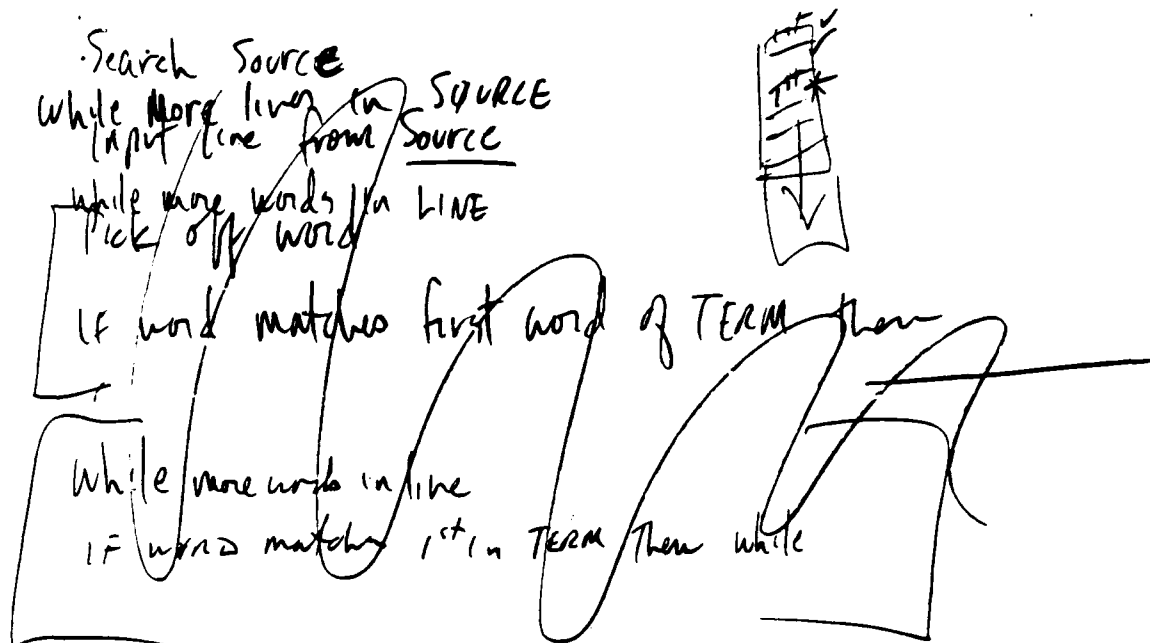 Search Source
while More lines in SOURCE
Input line from Source
while more words in LINE
Pick off word
IF word matches first word of TERM then
While more words in line
IF word matches 1st in TERM then while